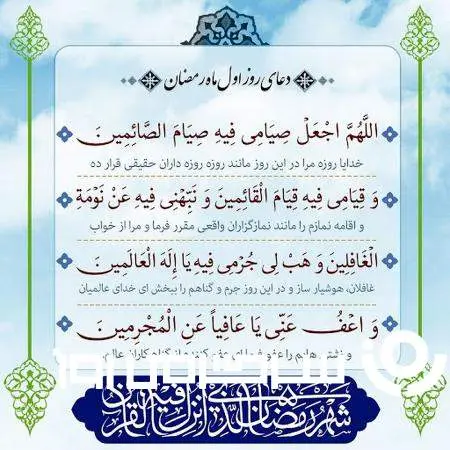 دعای روز اول ماه رمضان
اللَّهُمَّ اجْعَلْ صِيَامِى فِيهِ صِيَامَ الصَّائِمِينَ
خدایا روزه مرا در این روز مانند روزه روزه داران حقیقی قرار ده
وَ قِيَامِى فِيهِ قِيَامَ الْقَائِمِينَ وَ نَبِّهْنِى فِيهِ عَنْ نَوْمَةِ
و اقامه نمازم را مانند نمازگزاران واقعی مقرر فرما و مرا از خواب
الْغَافِلِينَ وَ هَبْ لِى جُرْمِى فِيهِ يَا إِلَهَ الْعَالَمِينَ
غافلان، هوشیار ساز و در این روز جرم و گناهم را ببخش ای خدای عالمیان
وَ اعْفُ عَنِّى يَا عَافِياً عَنِ الْمُجْرِمِينَ
شهر رمضان الذی انزل فیه القرآن